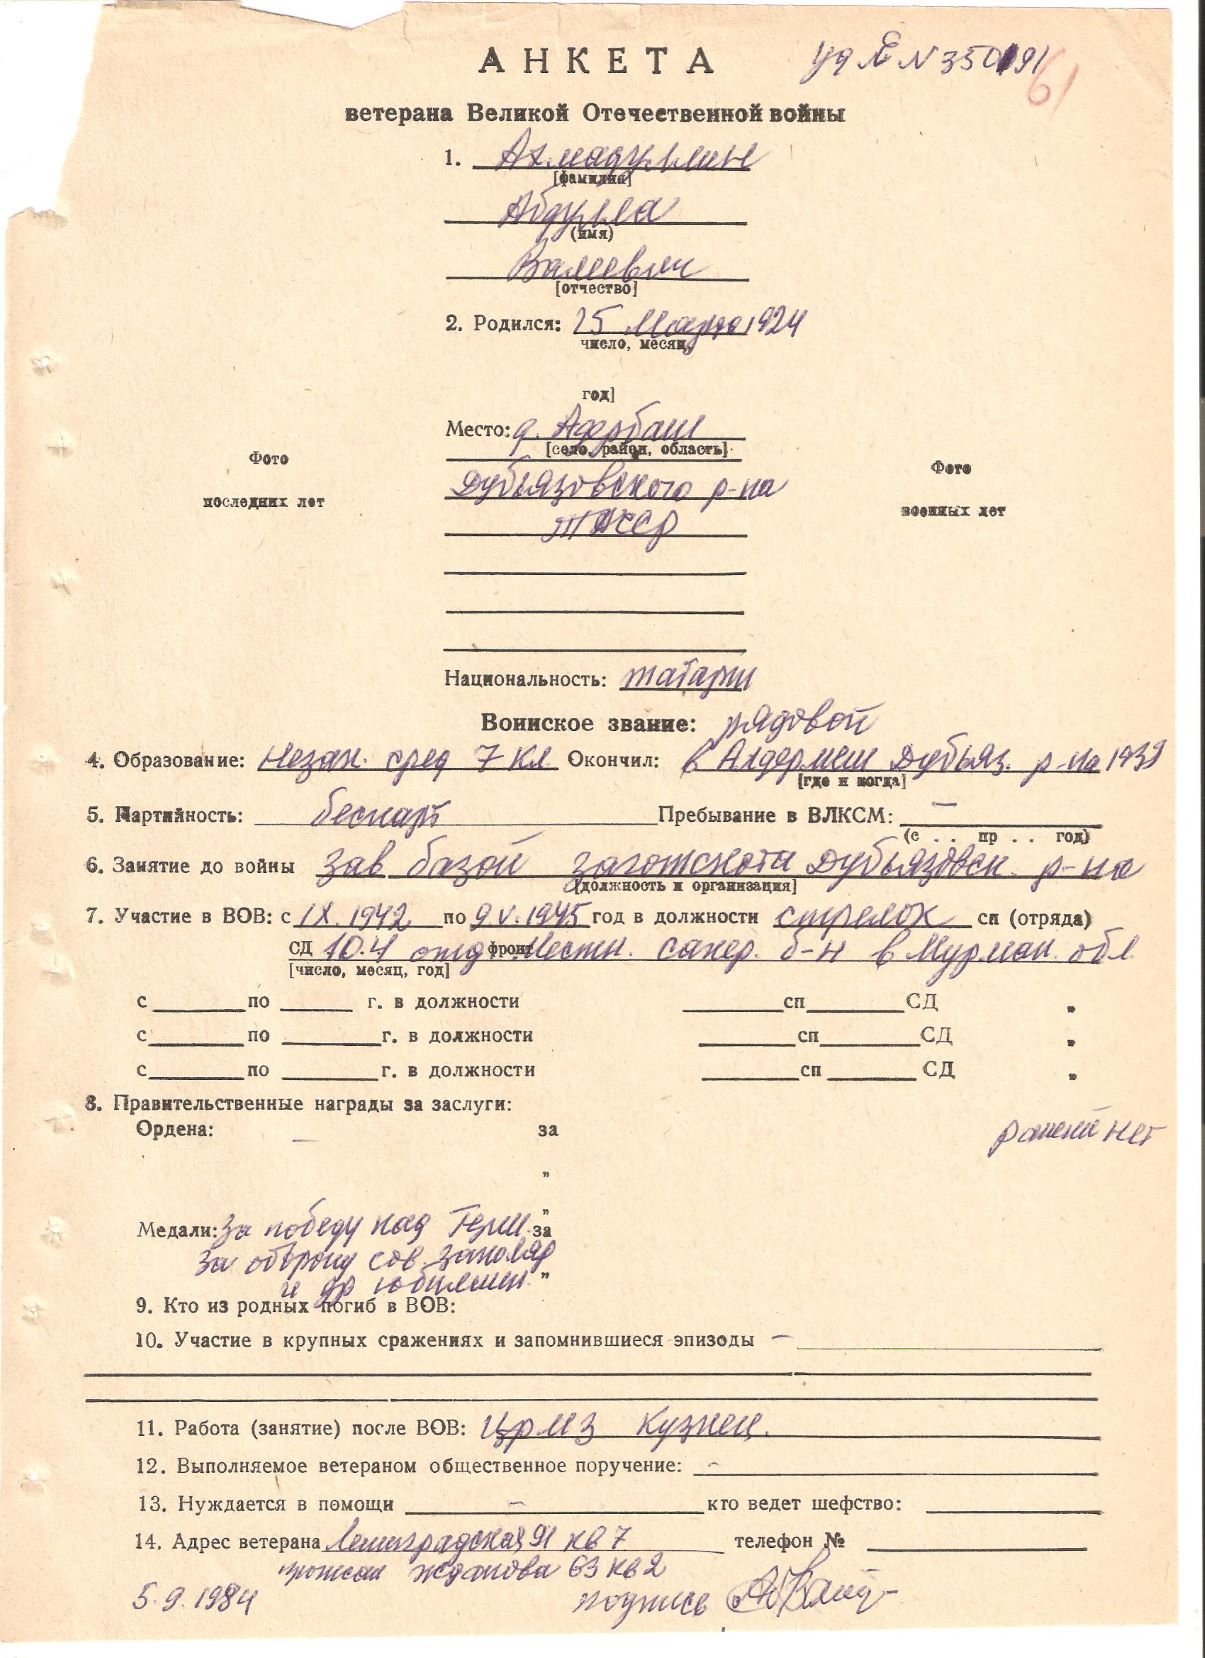 АНКЕТА
уд Е N 350191
61
ветерана Великой Отечественной войны
1. Ахмадуллин
[фамилия]
Абдулла
(имя)
Валеевич
[отчество]
2. Родился: 25 Марта 1924
число, месяц,
год]
Место: д. Адербаш
[село, район, область]
Дубъязовского р-на
ТАССР
Фото
последних лет
Фото
военных лет
Национальность: татарин
Воинское звание: рядовой
4. Образование: Незак. сред 7 кл Окончил: в Алдермеш Дубъяз. р-на 1939
[где и когда]
5. Партийность: беспарт Пребывание в ВЛКСМ: —
(с . . пр . . год)
6. Занятие до войны Зав базой заготскота Дубъязовск. р-на
(должность и организация]
7. Участие в ВОВ: с IX. 1942 по 9.V.1945 год в должности стрелок сп (отряда)
СД 10.4 отд фронт Местн. сапер. б-н в Мурман. обл.
[число, месяц, год]
с по г. в должности сп СД "
с по г. в должности сп СД "
с по г. в должности сп СД "
8. Правительственные награды за заслуги:
Ордена: — за
ранений нет
"
"
Медали: За победу над Герм. за
За оборону сов. заполяр
и др юбилейн. "
9. Кто из родных погиб в ВОВ:
10. Участие в крупных сражениях и запомнившиеся эпизоды —
11. Работа (занятие) после ВОВ: ЦРМЗ кузнец.
12. Выполняемое ветераном общественное поручение: —
13. Нуждается в помощи — кто ведет шефство:
14. Адрес ветерана Ленинградская 91 кв 7 телефон №
Жданова 63 кв 2
5.9.1984 подпись